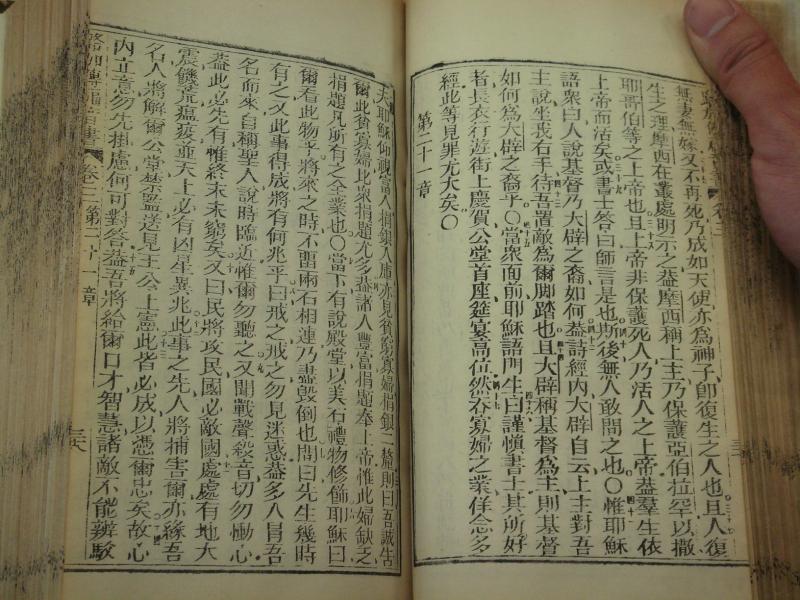 無妻無嫁又不再死乃成如天使亦為神子卽復生之人也且人復
生之理摩西在叢處明示之葢摩西稱上主乃保護亞伯拉罕以撒
耶哥伯等之上帝也且上帝非保護死人乃活人之上帝葢羣生依
上帝而活矣或書士答曰師言是也斯後無人敢問之也〇惟耶穌
語衆曰人說基督乃大辟之裔如何葢詩經內大辟自云上主對吾
主說坐我右手待吾置敵為爾脚踏也且大辟稱基督為主則基督
如何為大辟之裔乎〇當衆面前耶穌語門生曰謹慎書士其所好
者長衣行遊街上慶賀公堂首座筵宴高位然吞寡婦之業佯念多
經此等見罪尤大矣〇
第二十一章
夫耶穌仰觀富人捐銀入庫亦見貧窮寡婦捐銀二釐則曰吾誠告
爾此貧寡婦比衆捐題尤多葢諸人豐富捐題奉上帝惟此婦缺乏
捐題凡所有之全業也〇當下有說殿堂以美石禮物修飾耶穌曰
爾看此物乎將來之時不畱兩石相連乃盡毀倒也問曰先生幾時
有之又此事得成將有何兆乎曰戒之戒之勿見迷惑葢多人冒吾
名而來自稱聖人說時臨近惟爾勿聽之又聞戰聲殺音切勿慟心
葢此必先有惟終末未窮矣又曰民將攻民國必敵國處處有地大
震饑荒瘟疫並天上必有凶星異兆此事之先人將捕害爾亦緣吾
名人將解爾公堂禁監送見王公上憲此皆必成以憑爾忠矣故心
內立意勿先掛慮何可對答葢吾將給爾口才智慧諸敵不能辨駁
卷三 第二十一章